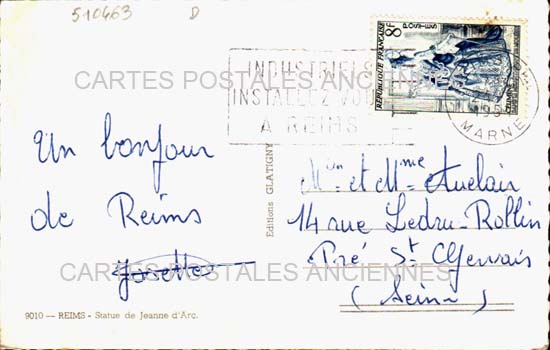 510463 D
8F
POSTES
RÉPUBLIQUE FRANÇAISE
INDUSTRIELS
INSTALLEZ VOUS
A REIMS
MARNE
CARTES POSTALES ANCIENNES
Un bonjour
de Reims
Josette
Editions GLATIGNY
Mr et Mme Auclair
14 rue Ledru-Rollin
Pré St Gervais
(Seine)
CARTES POSTALES ANCIENNES
9010 — REIMS - Statue de Jeanne d'Arc.